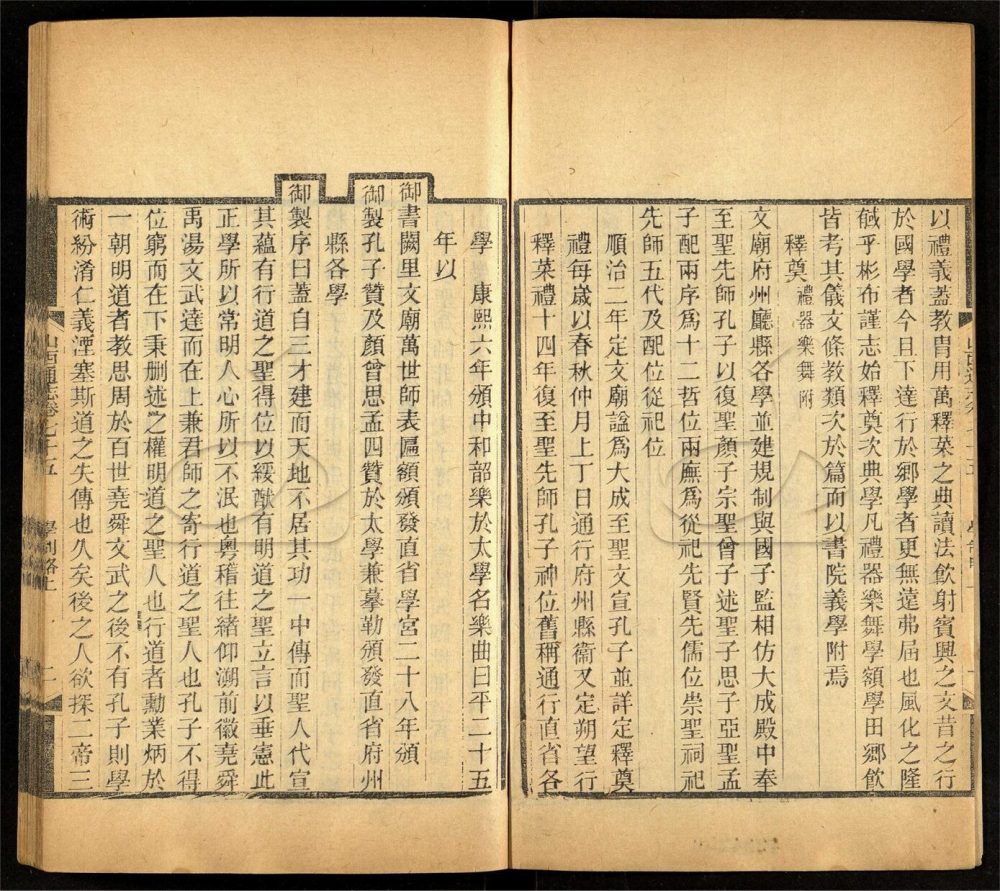 以禮義蓋教胄用萬釋菜之典讀法飲射賓興之文昔之行
於國學者今且下達行於鄉學者更無遠弗屆也風化之隆
鹹乎彬布謹志始釋奠次典學凡禮器樂舞學額學田鄉飲
皆考其儀文條教類次於篇而以書院義學附焉
釋奠禮器樂舞附
文廟府州廳縣各學並建規制與國子監相仿大成殿中奉
至聖先師孔子以復聖顏子宗聖曾子述聖子思子亞聖孟
子配兩序爲十二哲位兩廡爲從祀先賢先儒位崇聖祠祀
先師五代及配位從祀位
順治二年定文廟諡爲大成至聖文宣孔子並詳定釋奠
禮每歲以春秋仲月上丁日通行府州縣衞又定朔望行
釋菜禮十四年復至聖先師孔子神位舊稱通行直省各
學 康熙六年頒中和韶樂於太學名樂曲曰平二十五
年以
御書闕里文廟萬世師表匾額頒發直省學宮二十八年頒
御製孔子贊及顏曾思孟四贊於太學兼摹勒頒發直省府州
縣各學
御製序曰蓋自三才建而天地不居其功一中傳而聖人代宣
其蘊有行道之聖得位以綏猷有明道之聖立言以垂憲此
正學所以常明人心所以不泯也粵稽往緒仰溯前徽堯舜
禹湯文武達而在上兼君師之寄行道之聖人也孔子不得
位窮而在下秉刪述之權明道之聖人也行道者勳業炳於
一朝明道者教思周於百世堯舜文武之後不有孔子則學
術紛淆仁義湮塞斯道之失傳也久矣後之人欲探二帝三
山西通志卷七十五 學制略上 二